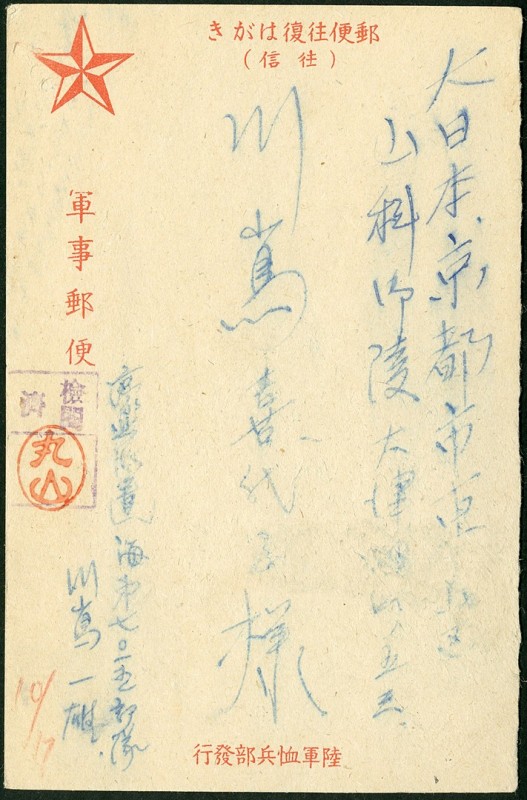 きがは復往便郵
（信往）
大日本京都市東山区
山科御陵大津畑山ノ五三
川嶌喜代子様
軍事郵便
檢閲
濟
丸山
海第七〇一五部隊
川嶌一雄
10/17
行發部兵恤軍陸